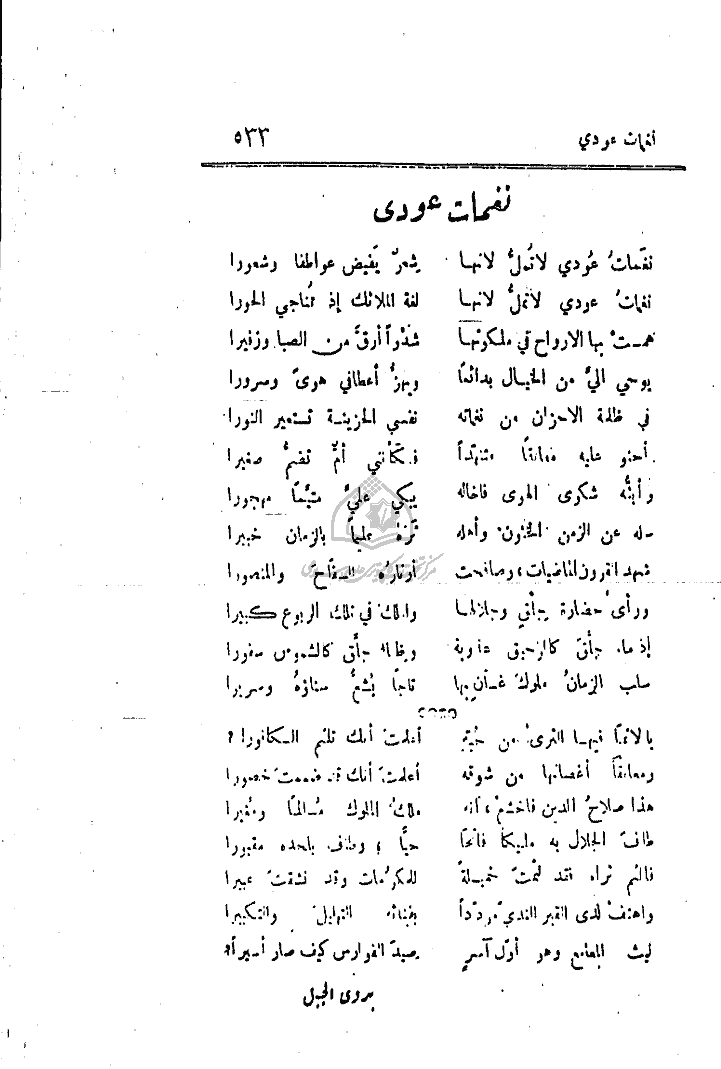 نغمات عودي ٥٣٣
نغمات عودى
نغماتُ عُودي لاتُملُّ لانهـا يشعرُ يَفيض عواطفا وشعورا
نغماتُ عودي لاتملُّ لانهـا لغة الملائك إذ تُناجي الحورا
همستْ بها الارواح في ملكوتهـا شذراً أرقَّ من الصبا وزفيرا
يوحي اليَّ من الخيال بدائعًا ويهزُّ أعطافي هوىً وسرورا
في ظلمة الاحزان من نغماته نفسي الحزينـة تستعير النورا
أحنو عليه معانقًا متنهّداً فكأنني أمٌّ تضمُّ صغيرا
وأبثُّه شكوى الهوى فاخاله يبكي عليَّ متيَّمًا مهجورا
سله عن الزمن الخؤون وأهله تَرَهُ عليماً بالزمان خبيرا
شهد القرون الماضيات وصافحت أوتارُه السفّاحَ والمنصورا
ورأى حضارة جلّقٍ وجلالهـا والملك في تلك الربوع كبيرا
إذ ماء جلّقَ كالرحيق عذوبة ونظائه جلّق كالشموس سفورا
سلب الزمانُ ملوكَ غسانٍ بها تاجًا يُشعُّ سناؤهُ وسريرا
يا لاثمًا فيهـا الثرى من حُبّهِ أعلمتَ أنك تلثم الكافورا ؟
ومعانقاً أغصانها من شوقه أعلمتَ أنك قد ضممت خصورا
هذا صلاحُ الدين فاخشعْ ، انه ملكُ الملوك مُسالمًا ومُغيرا
طافَ الجلال به مليكا فاتحًا حيًّا ، وطاف بلحده مقبورا
فالثم ثراه فقد لثمتَ خميلةً للمكرمات وقد نشقتَ عبيرا
واهتفْ لدى القبر النديِّ مردّداً بفنائه التهليل والتكبيرا
ليث المعامع وهو أوّل آسرٍ صيدَ الفوارس كيف صار أسيرا؟
بدوى الجبل